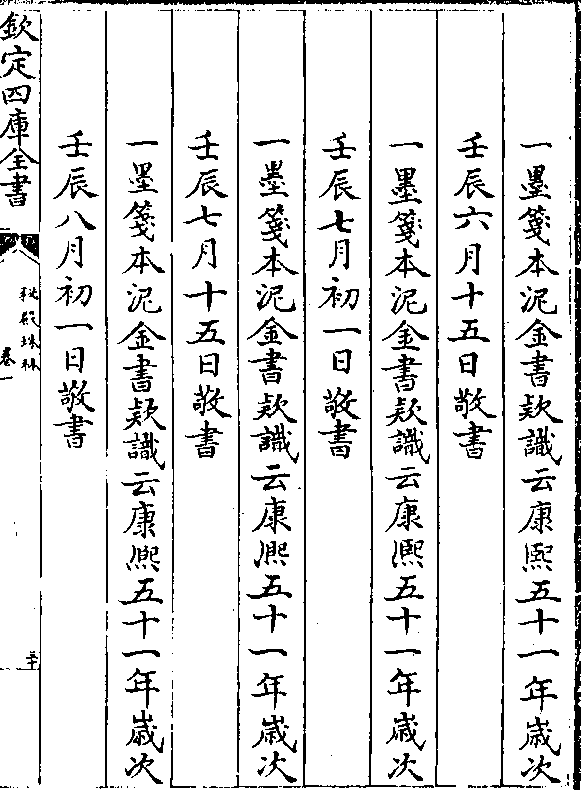 一墨箋本泥金書欵識云康熙五十一年歳次
壬辰六月十五日敬書
一墨箋本泥金書欵識云康熙五十一年歳次
壬辰七月初一日敬書
一墨箋本泥金書欵識云康熙五十一年歳次
壬辰七月十五日敬書
一墨箋本泥金書欵識云康熙五十一年歳次
壬辰八月初一日敬書
欽定四庫全書
秘殿珠林
卷一